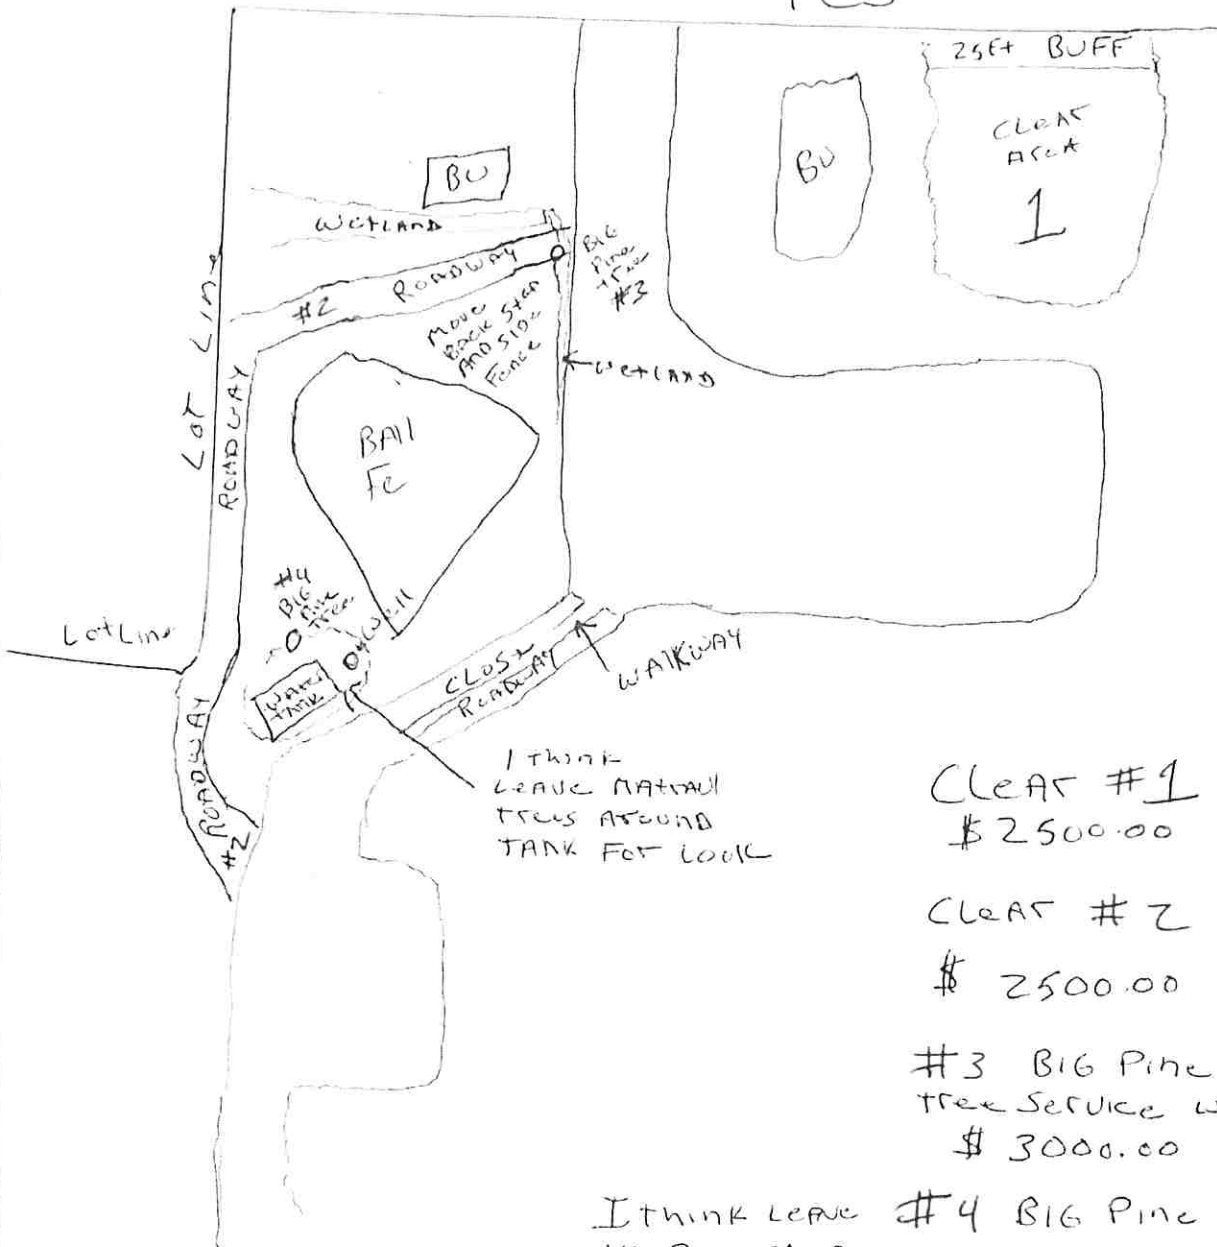 25Ft BUFF
CLEAR
AREA
1
BU
BU
WETLAND
ROADWAY
#2
BIG
PINE
TREE
#3
MOVE
BACK STOP
AND SIDE
FENCE
WETLAND
LOT LINE
ROADWAY
BAll
Fe
#4
BIG
PINE
TREE
WELL
Lot Line
WATER
TANK
CLOSE
ROADWAY
WALKWAY
ROADWAY
#2
I THINK
LEAVE NATRAUl
TREES AROUND
TANK FOR LOOK
CLEAR #1
$2500.00
CLEAR #2
$ 2500.00
#3 BIG PINE
TREE SERVICE W
$ 3000.00
I THINK LEAVE #4 BIG PINE